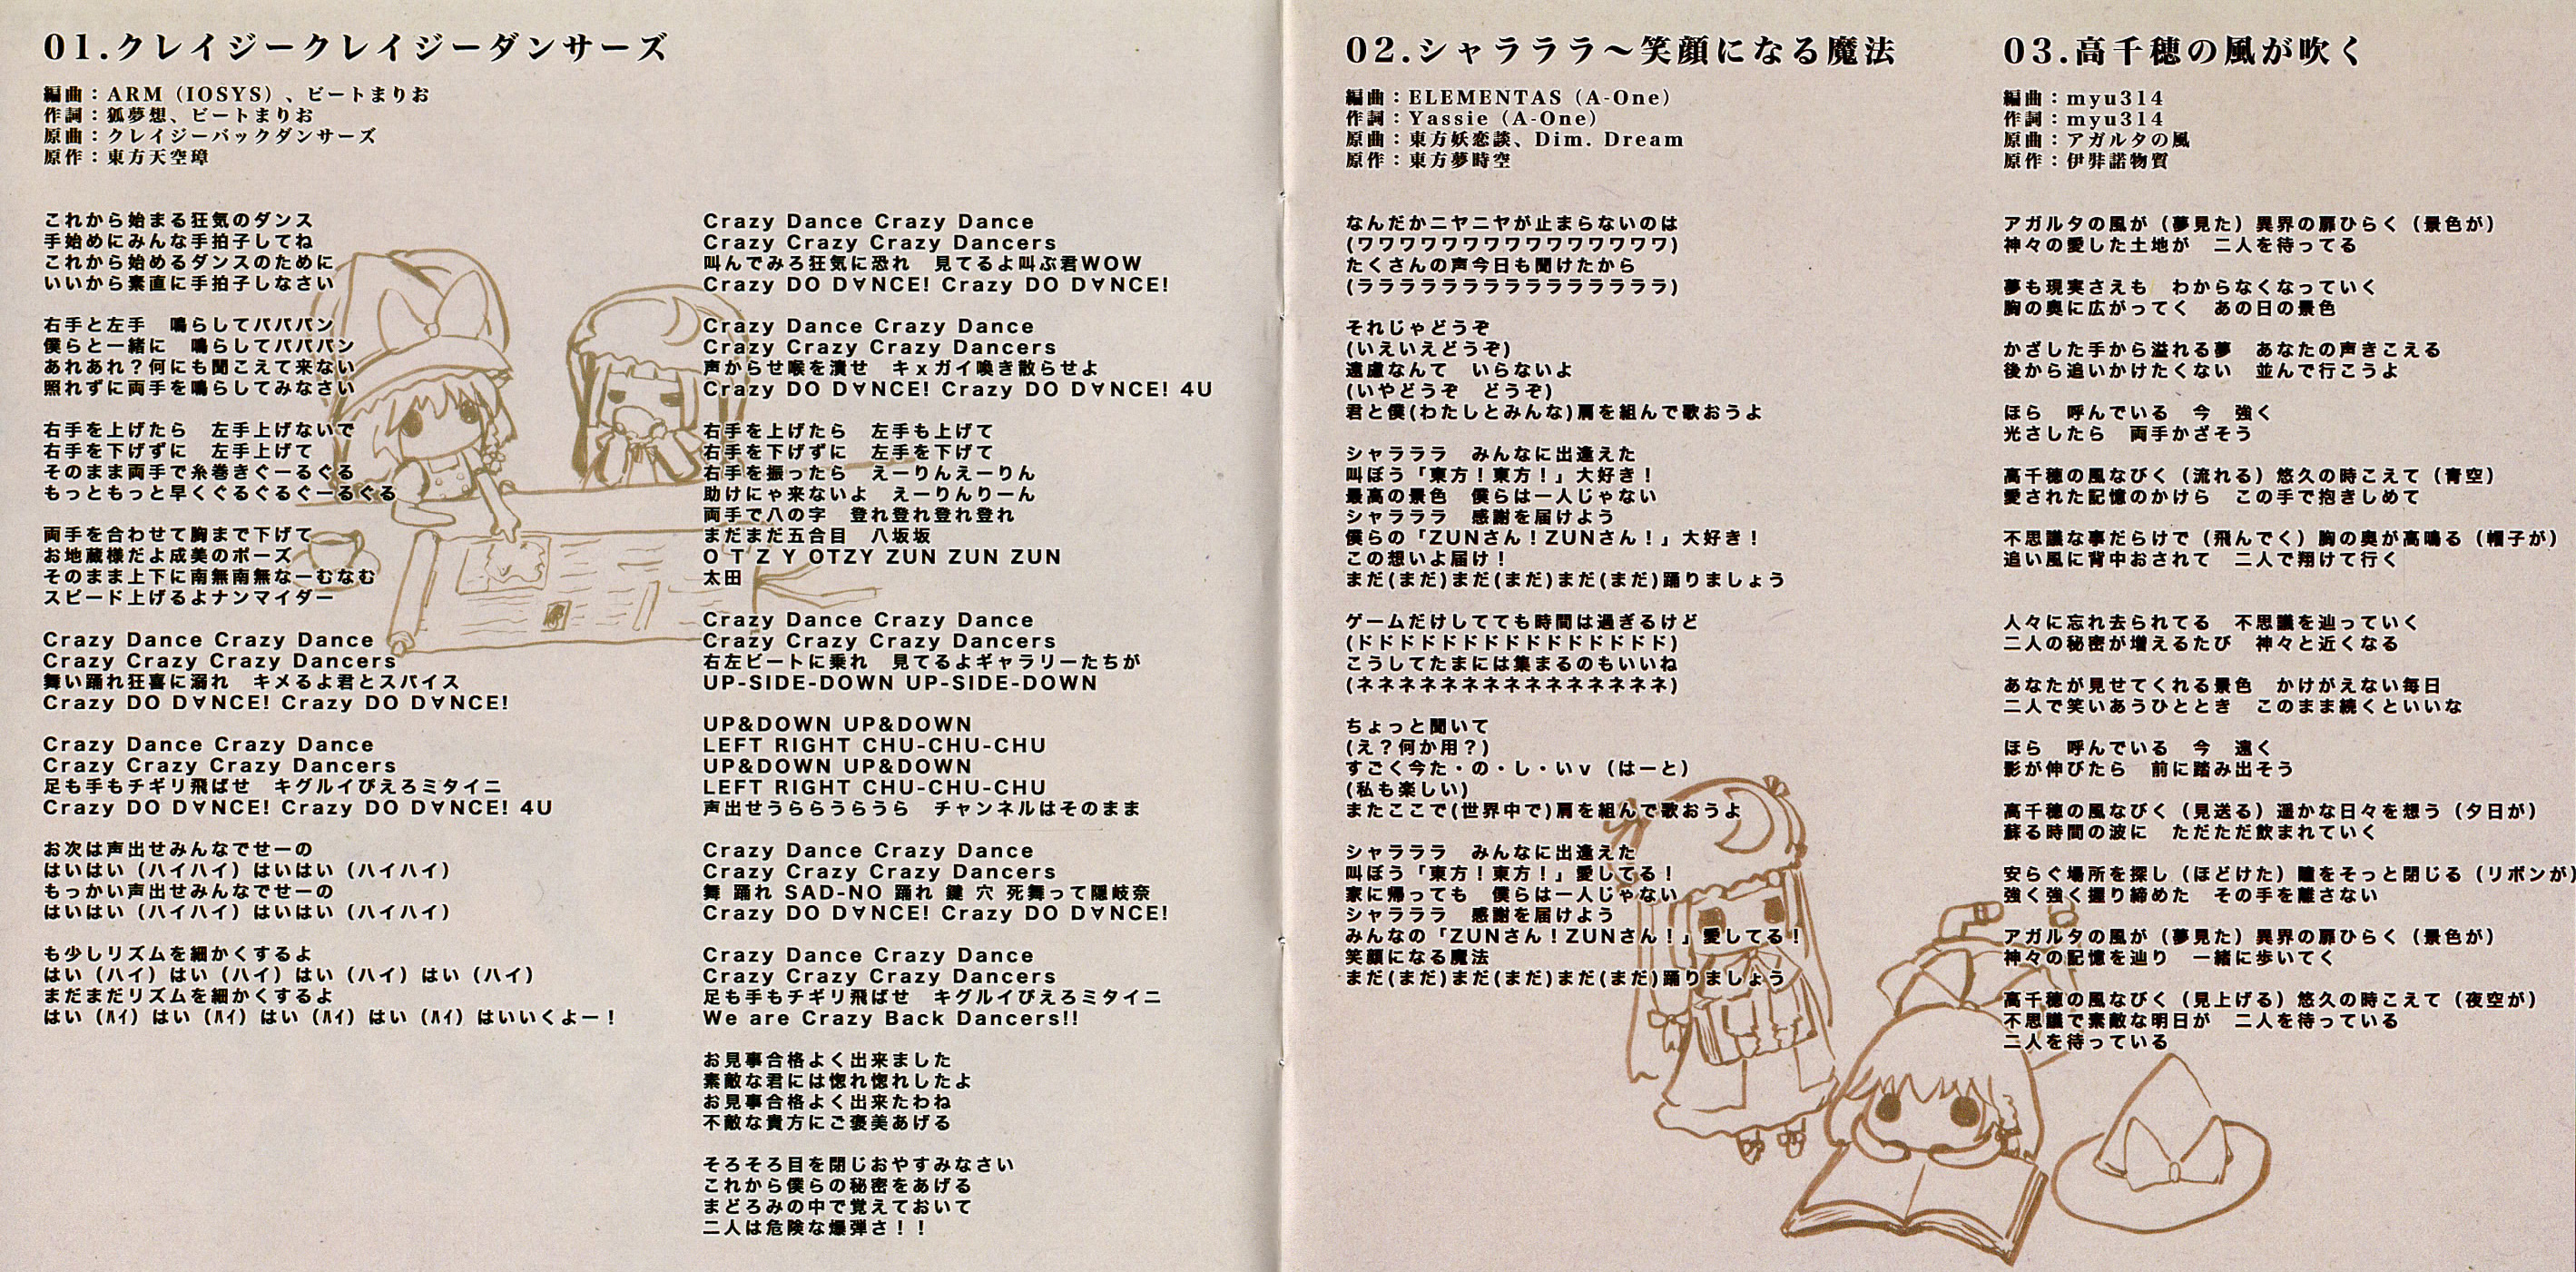 01.クレイジークレイジーダンサーズ
編曲：ARM（IOSYS）、ビートまりお
作詞：狐夢想、ビートまりお
原曲：クレイジーバックダンサーズ
原作：東方天空璋
これから始まる狂気のダンス
手始めにみんな手拍子してね
これから始めるダンスのために
いいから素直に手拍子しなさい
右手と左手　鳴らしてパパパン
僕らと一緒に　鳴らしてパパパン
あれあれ？何にも聞こえて来ない
照れずに両手を鳴らしてみなさい
右手を上げたら　左手上げないで
右手を下げずに　左手上げて
そのまま両手で糸巻きぐーるぐる
もっともっと早くぐるぐるぐーるぐる
両手を合わせて胸まで下げて
お地蔵様だよ成美のポーズ
そのまま上下に南無南無なーむなむ
スピード上げるよナンマイダー
Crazy Dance Crazy Dance
Crazy Crazy Crazy Dancers
舞い踊れ狂喜に溺れ　キメるよ君とスパイス
Crazy DO D∀NCE! Crazy DO D∀NCE!
Crazy Dance Crazy Dance
Crazy Crazy Crazy Dancers
足も手もチギリ飛ばせ　キグルイぴえろミタイニ
Crazy DO D∀NCE! Crazy DO D∀NCE! 4U
お次は声出せみんなでせーの
はいはい（ハイハイ）はいはい（ハイハイ）
もっかい声出せみんなでせーの
はいはい（ハイハイ）はいはい（ハイハイ）
も少しリズムを細かくするよ
はい（ハイ）はい（ハイ）はい（ハイ）はい（ハイ）
まだまだリズムを細かくするよ
はい（ﾊｲ）はい（ﾊｲ）はい（ﾊｲ）はい（ﾊｲ）はいいくよー！
Crazy Dance Crazy Dance
Crazy Crazy Crazy Dancers
叫んでみろ狂気に恐れ　見てるよ叫ぶ君WOW
Crazy DO D∀NCE! Crazy DO D∀NCE!
Crazy Dance Crazy Dance
Crazy Crazy Crazy Dancers
声からせ喉を潰せ　キｘガイ喚き散らせよ
Crazy DO D∀NCE! Crazy DO D∀NCE! 4U
右手を上げたら　左手も上げて
右手を下げずに　左手を下げて
右手を振ったら　えーりんえーりん
助けにゃ来ないよ　えーりんりーん
両手で八の字　登れ登れ登れ登れ
まだまだ五合目　八坂坂
O T Z Y OTZY ZUN ZUN ZUN
太田
Crazy Dance Crazy Dance
Crazy Crazy Crazy Dancers
右左ビートに乗れ　見てるよギャラリーたちが
UP-SIDE-DOWN UP-SIDE-DOWN
UP&DOWN UP&DOWN
LEFT RIGHT CHU-CHU-CHU
UP&DOWN UP&DOWN
LEFT RIGHT CHU-CHU-CHU
声出せうららうらうら　チャンネルはそのまま
Crazy Dance Crazy Dance
Crazy Crazy Crazy Dancers
舞 踊れ SAD-NO 踊れ 鍵 穴 死舞って隠岐奈
Crazy DO D∀NCE! Crazy DO D∀NCE!
Crazy Dance Crazy Dance
Crazy Crazy Crazy Dancers
足も手もチギリ飛ばせ　キグルイぴえろミタイニ
We are Crazy Back Dancers!!
お見事合格よく出来ました
素敵な君には惚れ惚れしたよ
お見事合格よく出来たわね
不敵な貴方にご褒美あげる
そろそろ目を閉じおやすみなさい
これから僕らの秘密をあげる
まどろみの中で覚えておいて
二人は危険な爆弾さ！！
02.シャラララ〜笑顔になる魔法
編曲：ELEMENTAS（A-One）
作詞：Yassie（A-One）
原曲：東方妖恋談、Dim. Dream
原作：東方夢時空
なんだかニヤニヤが止まらないのは
(ワワワワワワワワワワワワワワワ)
たくさんの声今日も聞けたから
(ララララララララララララララ)
それじゃどうぞ
(いえいえどうぞ)
遠慮なんて　いらないよ
(いやどうぞ　どうぞ)
君と僕(わたしとみんな)肩を組んで歌おうよ
シャラララ　みんなに出逢えた
叫ぼう「東方！東方！」大好き！
最高の景色　僕らは一人じゃない
シャラララ　感謝を届けよう
僕らの「ZUNさん！ZUNさん！」大好き！
この想いよ届け！
まだ(まだ)まだ(まだ)まだ(まだ)踊りましょう
ゲームだけしてても時間は過ぎるけど
(ドドドドドドドドドドドドドドド)
こうしてたまには集まるのもいいね
(ネネネネネネネネネネネネネネネ)
ちょっと聞いて
(え？何か用？)
すごく今た・の・し・いｖ（はーと）
(私も楽しい)
またここで(世界中で)肩を組んで歌おうよ
シャラララ　みんなに出逢えた
叫ぼう「東方！東方！」愛してる！
家に帰っても　僕らは一人じゃない
シャラララ　感謝を届けよう
みんなの「ZUNさん！ZUNさん！」愛してる！
笑顔になる魔法
まだ(まだ)まだ(まだ)まだ(まだ)踊りましょう
03.高千穂の風が吹く
編曲：myu314
作詞：myu314
原曲：アガルタの風
原作：伊弉諾物質
アガルタの風が（夢見た）異界の扉ひらく（景色が）
神々の愛した土地が　二人を待ってる
夢も現実さえも　わからなくなっていく
胸の奥に広がってく　あの日の景色
かざした手から溢れる夢　あなたの声きこえる
後から追いかけたくない　並んで行こうよ
ほら　呼んでいる　今　強く
光さしたら　両手かざそう
高千穂の風なびく（流れる）悠久の時こえて（青空）
愛された記憶のかけら　この手で抱きしめて
不思議な事だらけで（飛んでく）胸の奥が高鳴る（帽子が）
追い風に背中おされて　二人で翔けて行く
人々に忘れ去られてる　不思議を辿っていく
二人の秘密が増えるたび　神々と近くなる
あなたが見せてくれる景色　かけがえない毎日
二人で笑いあうひととき　このまま続くといいな
ほら　呼んでいる　今　遠く
影が伸びたら　前に踏み出そう
高千穂の風なびく（見送る）遥かな日々を想う（夕日が）
蘇る時間の波に　ただただ飲まれていく
安らぐ場所を探し（ほどけた）瞳をそっと閉じる（リボンが）
強く強く握り締めた　その手を離さない
アガルタの風が（夢見た）異界の扉ひらく（景色が）
神々の記憶を辿り　一緒に歩いてく
高千穂の風なびく（見上げる）悠久の時こえて（夜空が）
不思議で素敵な明日が　二人を待っている
二人を待っている